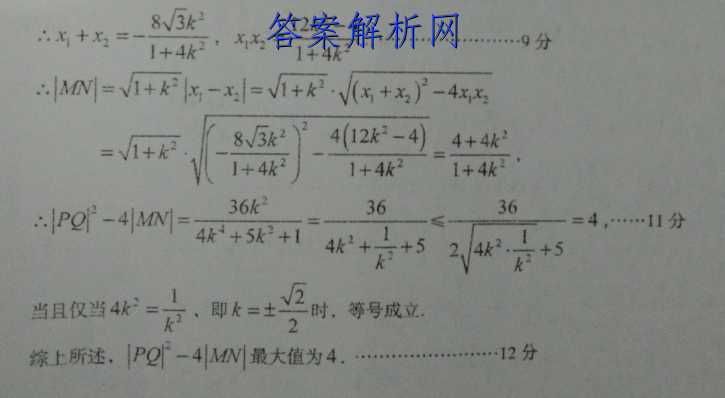 ∴ x₁ + x₂ = -8√3k²/(1+4k²), x₁x₂ 12k 1+4k² ……………………9分
答案解析网
∴|MN| = √(1+k²)|x₁ - x₂| = √(1+k²)·√((x₁+x₂)² - 4x₁x₂)
= √(1+k²)·√((-8√3k²/(1+4k²))² - 4(12k²-4)/(1+4k²)) = (4+4k²)/(1+4k²),
∴|PQ|² - 4|MN| = 36k²/(4k⁴+5k²+1) = 36/(4k²+1/k²+5) ≤ 36/(2√(4k²·1/k²)+5) = 4,……11分
当且仅当 4k² = 1/k², 即 k = ±√2/2 时, 等号成立.
综上所述, |PQ|² - 4|MN| 最大值为 4. ……………………12分